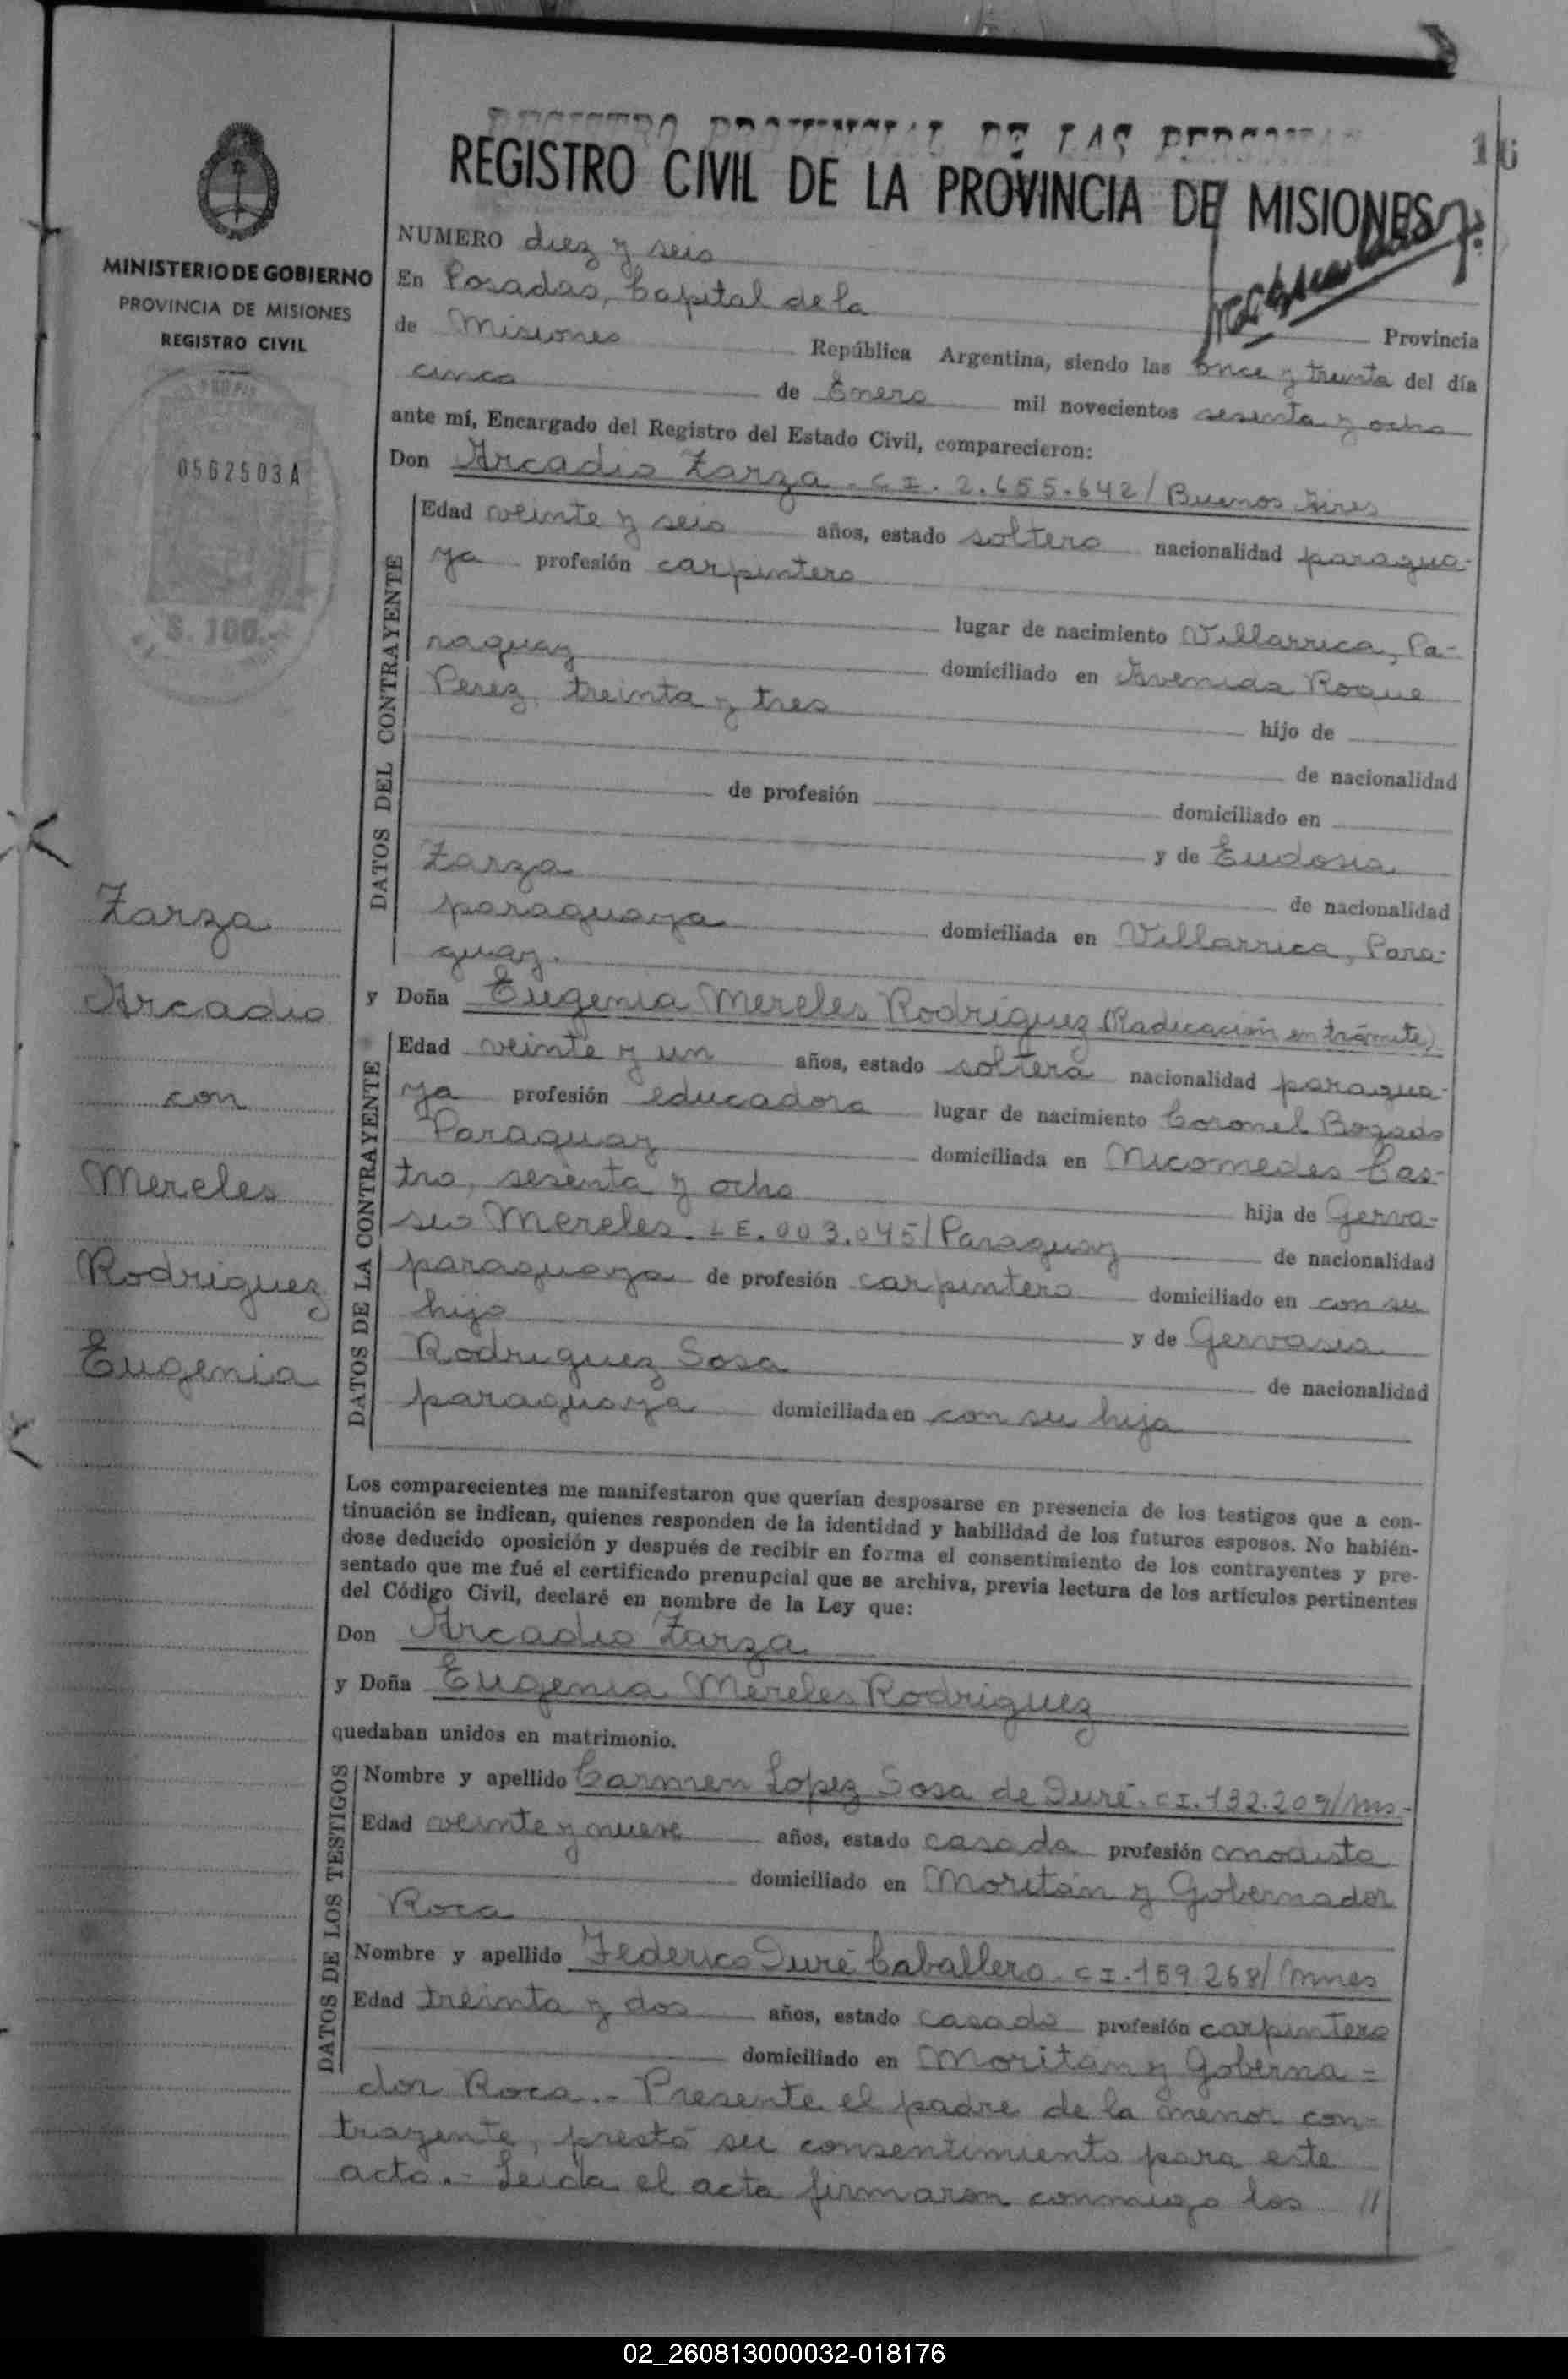 REGISTRO PROVINCIAL DE LAS PERSONAS
16
REGISTRO CIVIL DE LA PROVINCIA DE MISIONES
MINISTERIO DE GOBIERNO
PROVINCIA DE MISIONES
REGISTRO CIVIL
0562503A
$. 100.-
Zarza
Arcadio
con
Mereles
Rodriguez
Eugenia
NUMERO diez y seis
En Posadas, Capital de la Provincia
de Misiones República Argentina, siendo las once y treinta del día
cinco de Enero mil novecientos sesenta y ocho
ante mí, Encargado del Registro del Estado Civil, comparecieron:
Don Arcadio Zarza. C I. 2.655.642/ Buenos Aires
DATOS DEL CONTRAYENTE
Edad veinte y seis años, estado soltero nacionalidad paragua-
ya profesión carpintero
lugar de nacimiento Villarrica, Pa-
raguay domiciliado en Avenida Roque
Perez, treinta y tres hijo de
de nacionalidad
de profesión domiciliado en
y de Eudosia
Zarza de nacionalidad
paraguaya domiciliada en Villarrica, Para-
guay.
y Doña Eugenia Mereles Rodriguez (Radicación en trámite)
DATOS DE LA CONTRAYENTE
Edad veinte y un años, estado soltera nacionalidad paragua-
ya profesión educadora lugar de nacimiento Coronel Bogado
Paraguay domiciliada en Nicomedes Cas-
tro, sesenta y ocho hija de Gerva-
sio Mereles. L E. 003.045/Paraguay de nacionalidad
paraguaya de profesión carpintero domiciliado en con su
hija y de Gervasia
Rodriguez Sosa de nacionalidad
paraguaya domiciliada en con su hija
Los comparecientes me manifestaron que querían desposarse en presencia de los testigos que a con-
tinuación se indican, quienes responden de la identidad y habilidad de los futuros esposos. No habién-
dose deducido oposición y después de recibir en forma el consentimiento de los contrayentes y pre-
sentado que me fué el certificado prenupcial que se archiva, previa lectura de los artículos pertinentes
del Código Civil, declaré en nombre de la Ley que:
Don Arcadio Zarza
y Doña Eugenia Mereles Rodriguez
quedaban unidos en matrimonio.
DATOS DE LOS TESTIGOS
Nombre y apellido Carmen Lopez Sosa de Duré. C I. 132.209/Mns.-
Edad veinte y nueve años, estado casada profesión modista
domiciliado en Moritán y Gobernador
Roca
Nombre y apellido Federico Duré Caballero. C I. 159.268/ Mnes
Edad treinta y dos años, estado casado profesión carpintero
domiciliado en Moritán y Goberna=
dor Roca.- Presente el padre de la menor con-
trayente, prestó su consentimiento para este
acto.- Leida el acta firmaron conmigo los //
02_260813000032-018176